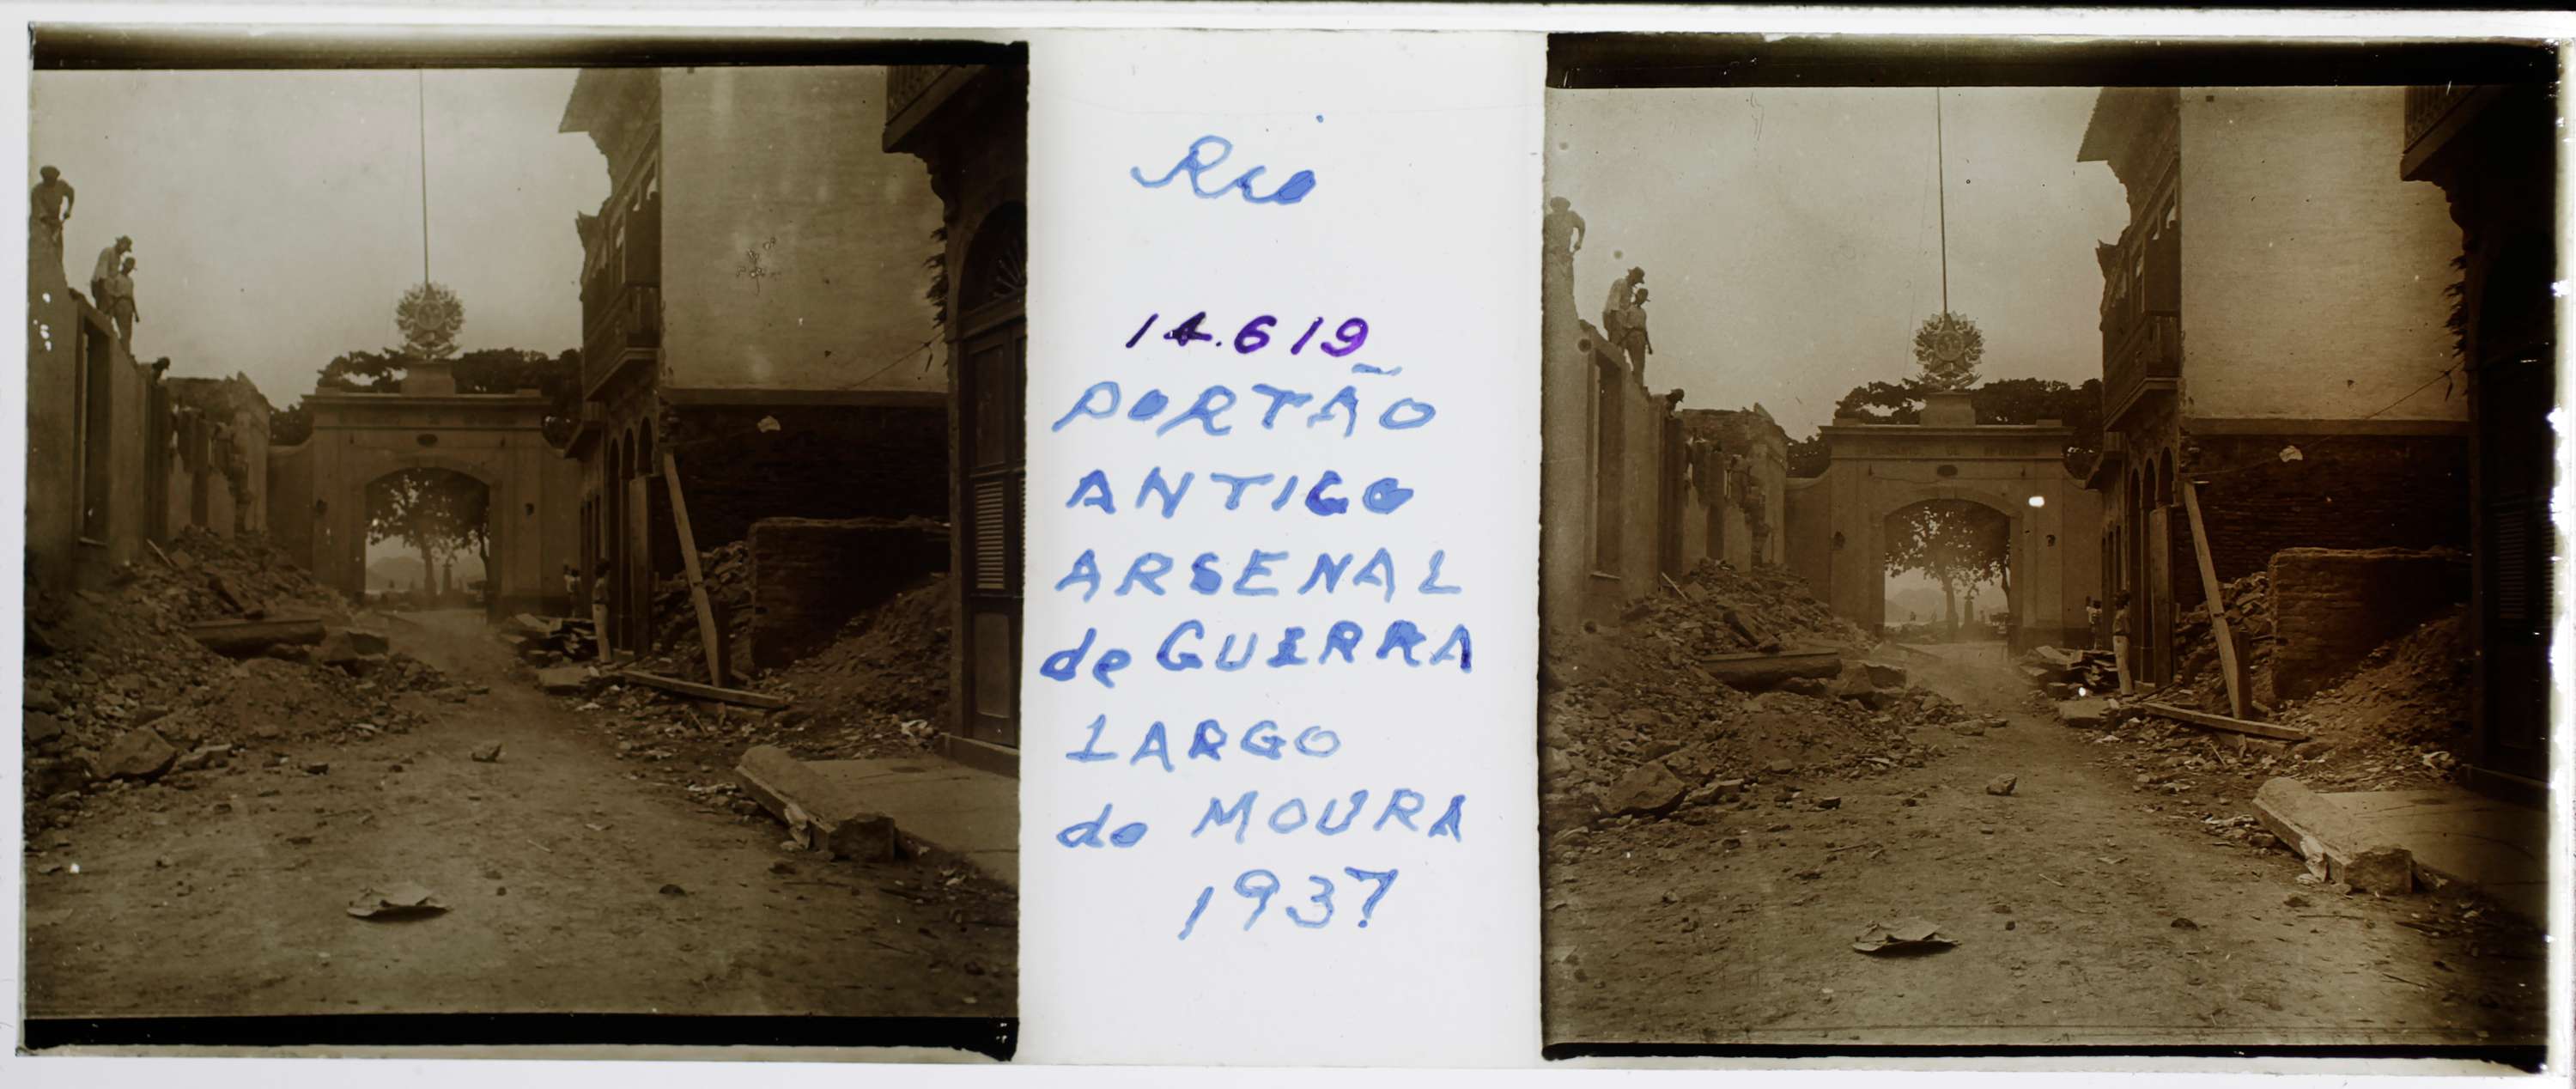 Rio
14.619
PORTÃO
ANTIGO
ARSENAL
de GUERRA
LARGO
do MOURA
1937